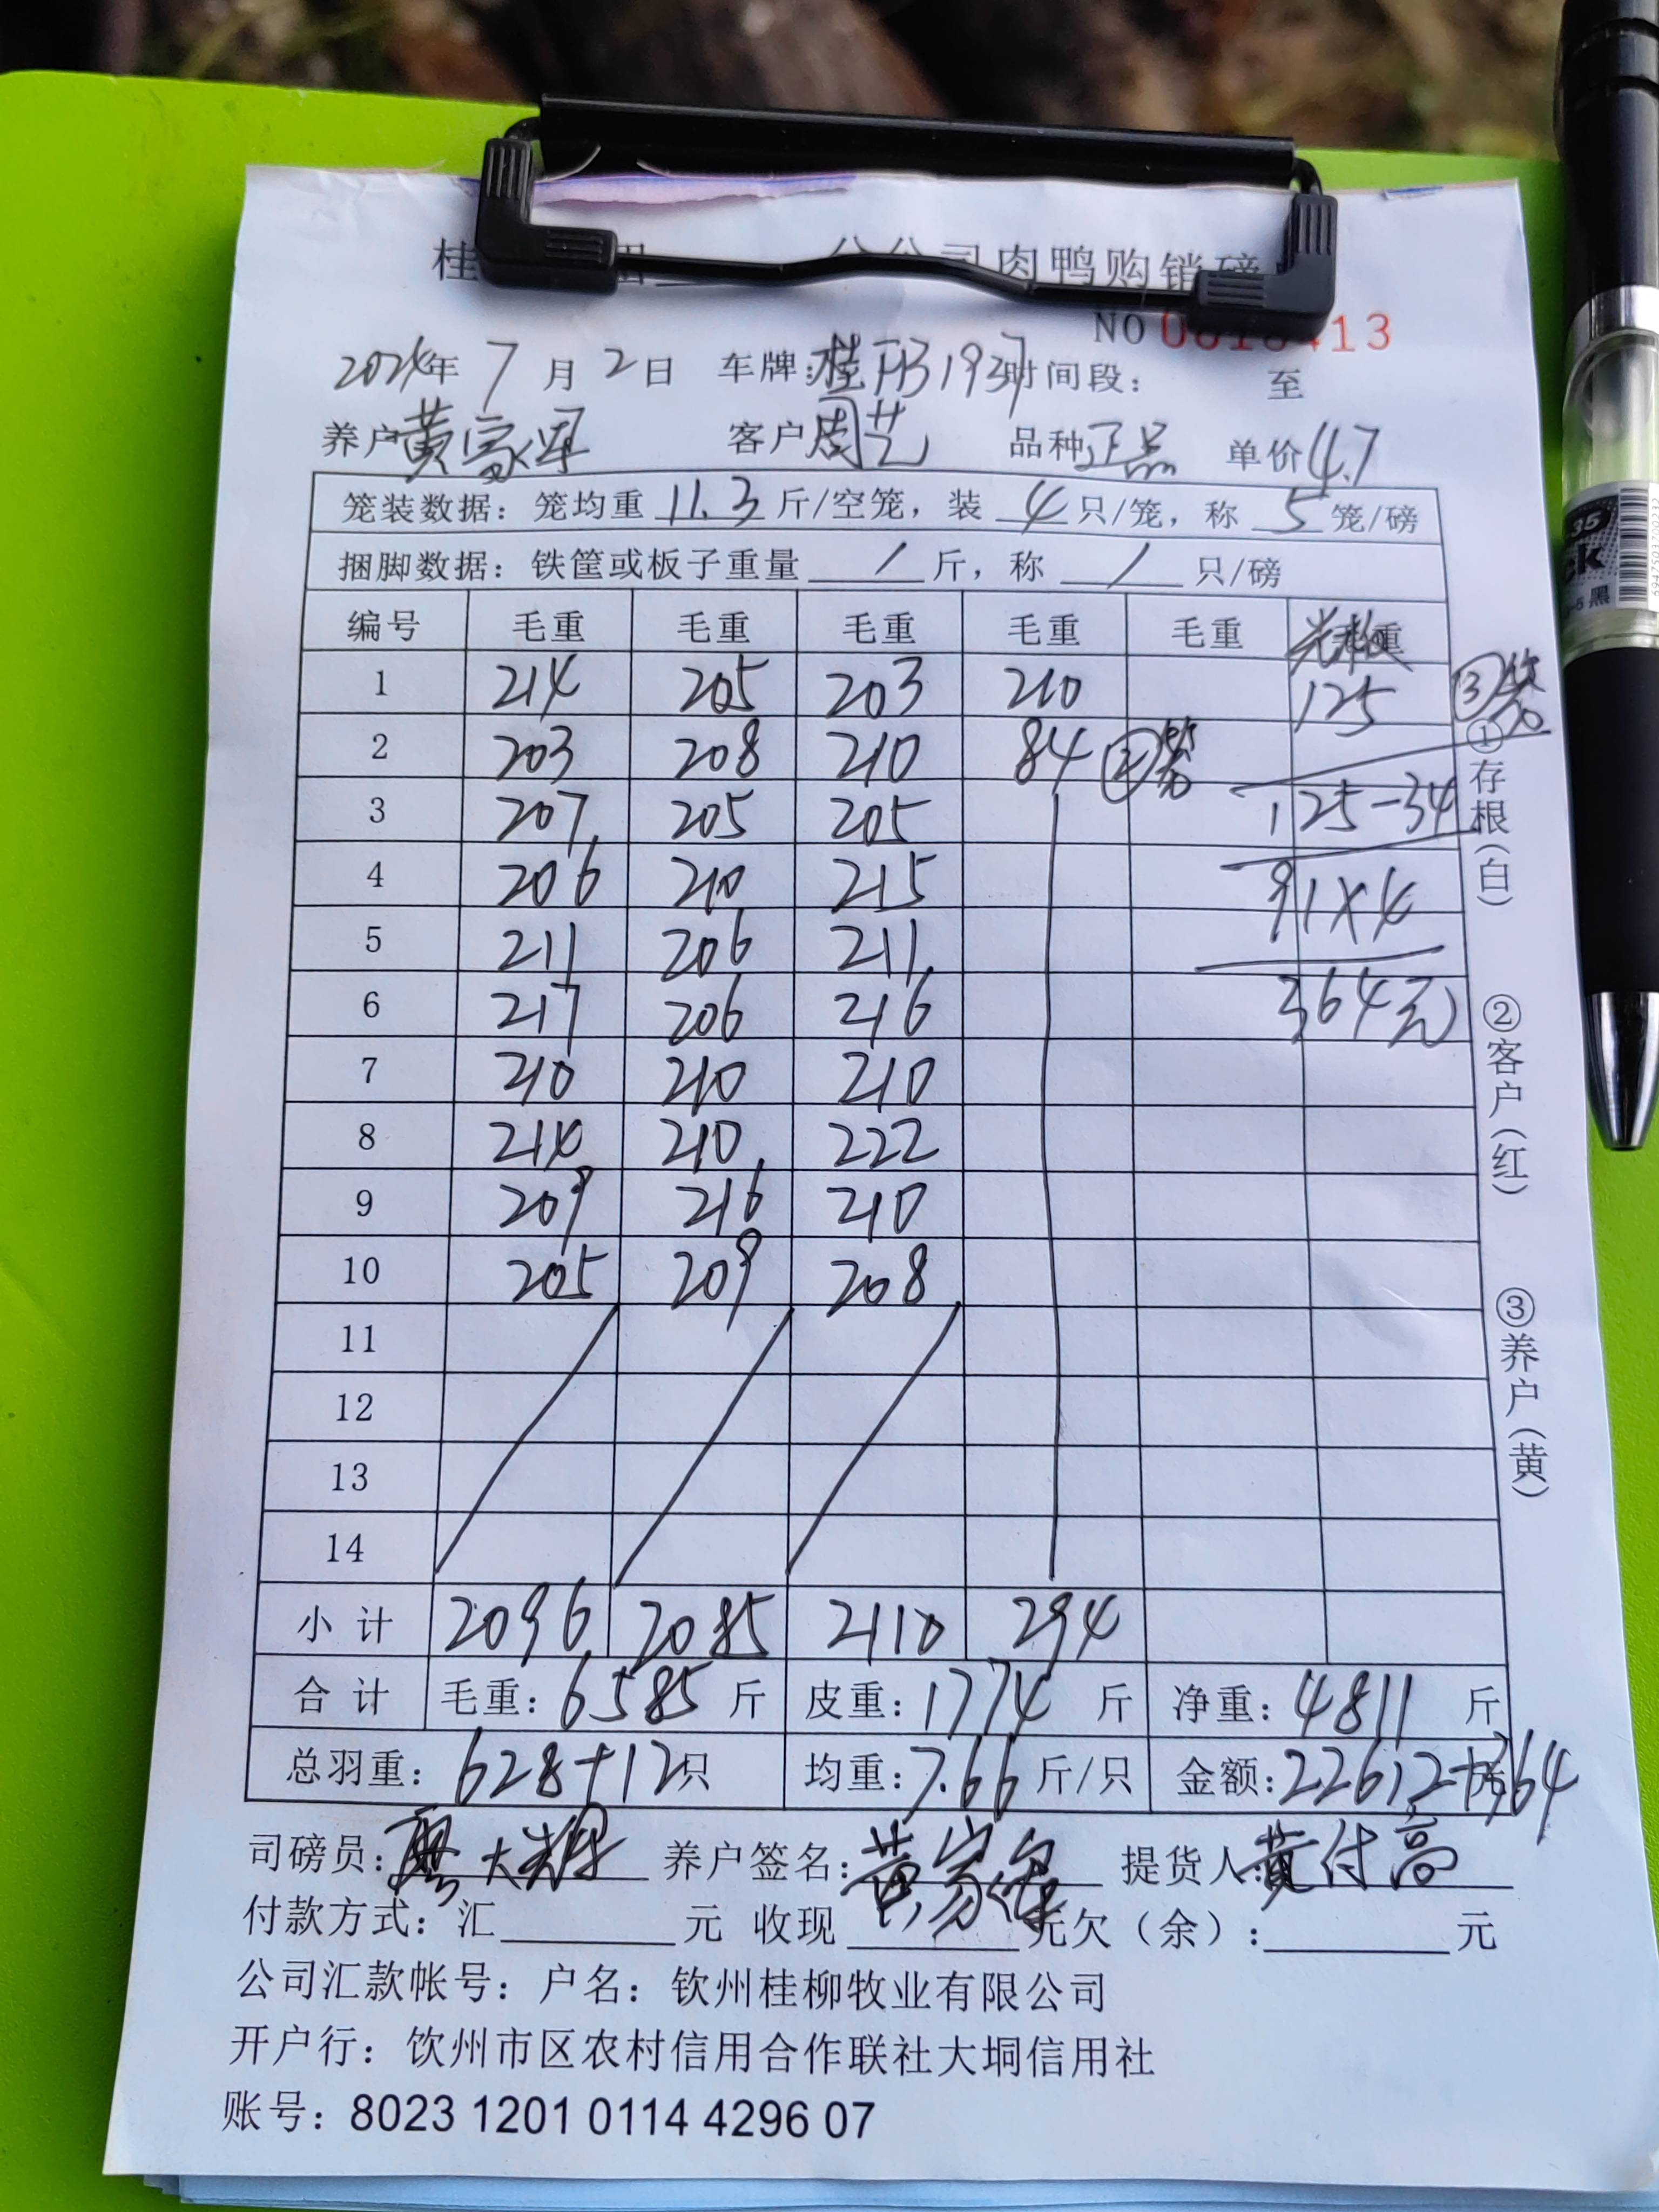 桂 分公司肉鸭购销磅
NO 13
2024年 7 月 2 日 车牌: 时间段: 至
养户 黄家军 客户 周艺 品种 正品 单价 4.7
笼装数据: 笼均重 11.3 斤/空笼, 装 4 只/笼, 称 5 笼/磅
捆脚数据: 铁筐或板子重量 / 斤, 称 / 只/磅
编号 毛重 毛重 毛重 毛重 毛重 重
1 214 205 203 210 125 ③笼
2 203 208 210 84 ②笼
3 207 205 205 125-34
4 206 210 215 91×4
5 211 206 211
6 217 206 216 364元
7 210 210 210
8 214 210 222
9 209 216 210
10 205 209 208
11
12
13
14
小计 2096 2085 2110 294
合计 毛重: 6585 斤 皮重: 1774 斤 净重: 4811 斤
总羽重: 628+12只 均重: 7.66 斤/只 金额: 22612+364
司磅员: 廖大辉 养户签名: 黄家军 提货人 黄付高
付款方式: 汇 元 收现 元欠(余): 元
公司汇款帐号: 户名: 钦州桂柳牧业有限公司
开户行: 钦州市区农村信用合作联社大垌信用社
账号: 8023 1201 0114 4296 07
①存根(白)
②客户(红)
③养户(黄)